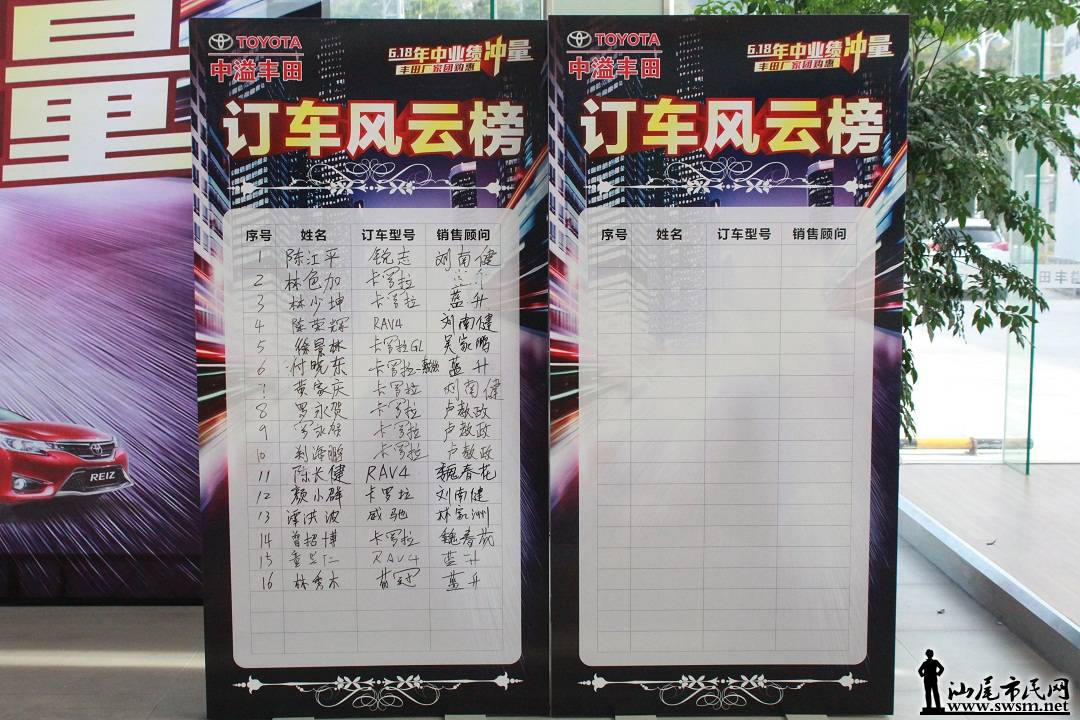 量
REIZ
TOYOTA
中溢丰田
6.18年中业绩冲量
丰田厂家团购惠
订车风云榜
序号 姓名 订车型号 销售顾问
1 陈江平 锐志 刘南健
2 林色加 卡罗拉
3 林少坤 卡罗拉 蓝升
4 陈荣辉 RAV4 刘南健
5 徐景林 卡罗拉GL 吴家鹏
6 付晓东 卡罗拉 蓝升
7 黄家庆 卡罗拉 刘南健
8 罗永贺 卡罗拉 卢敖政
9 罗永 卡罗拉 卢敖政
10 刘海鹏 卡罗拉 卢敖政
11 陈长健 RAV4 魏春花
12 颜小群 卡罗拉 刘南健
13 谭洪波 威驰 林家洲
14 曾招博 卡罗拉 魏春花
15 RAV4 蓝升
16 林秀木 皇冠 蓝升
TOYOTA
中溢丰田
6.18年中业绩冲量
丰田厂家团购惠
订车风云榜
序号 姓名 订车型号 销售顾问
田丰溢
汕尾市民网
www.swsm.net